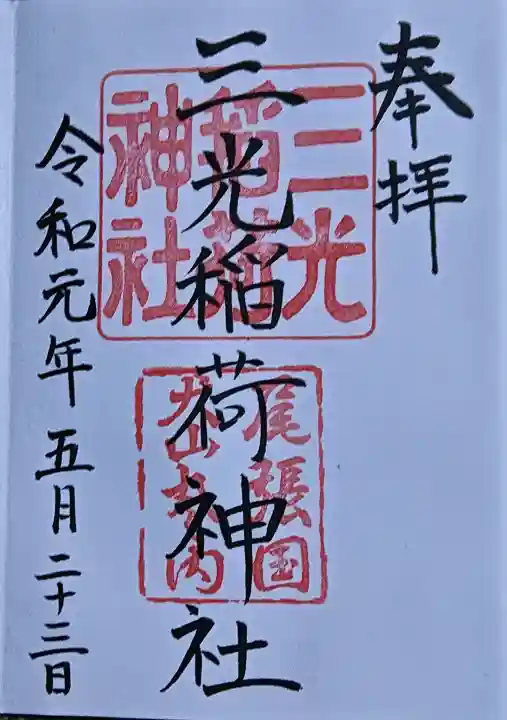 奉拝
三光稲荷神社
三光
稲荷
神社
尾張国
犬山城内
令和元年五月二十三日